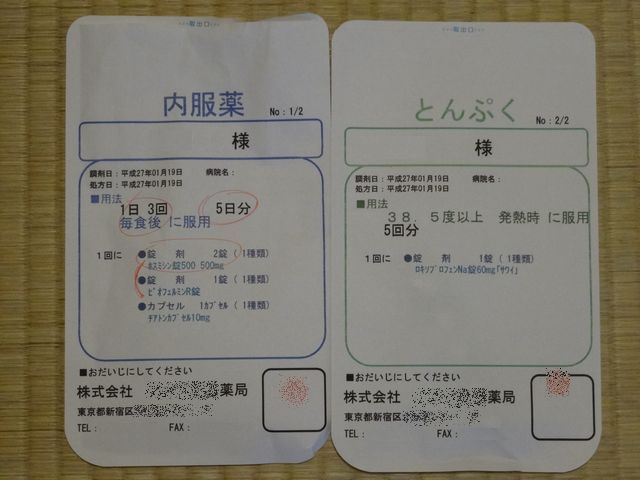 取出口
内服薬 No：1/2
様
調剤日：平成27年01月19日 病院名：
処方日：平成27年01月19日
■用法
1日 3回 5日分
毎食後 に服用
1回に ●錠 剤 2錠（1種類）
ﾎｽﾐｼﾝ錠500 500mg
●錠 剤 1錠（1種類）
ﾋﾞｵﾌｪﾙﾐﾝR錠
●カプセル 1ｶﾌﾟｾﾙ（1種類）
ﾁｱﾄﾝｶﾌﾟｾﾙ10mg
■おだいじにしてください
株式会社 薬局
東京都新宿区
TEL： FAX：
取出口
とんぷく No：2/2
様
調剤日：平成27年01月19日 病院名：
処方日：平成27年01月19日
■用法
38．5度以上 発熱時 に服用
5回分
1回に ●錠 剤 1錠（1種類）
ﾛｷｿﾌﾟﾛﾌｪﾝNa錠60mg｢ｻﾜｲ｣
■おだいじにしてください
株式会社 薬局
東京都新宿区
TEL： FAX：